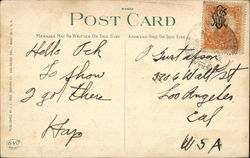 POST CARD
MESSAGE MAY BE WRITTEN ON THIS SIDE
ADDRESS ONLY ON THIS SIDE
Hello Ock
To show
I got there
Hap
O Gustafson
320 6 Wall St
Los Angeles
Cal
USA